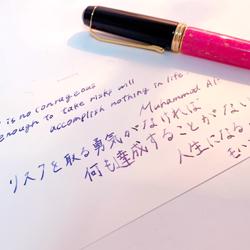 is no courageous
enough to take risks will
accomplish nothing in life
Muhammad Al
リスクを取る勇気がなければ
何も達成することがない
人生になる